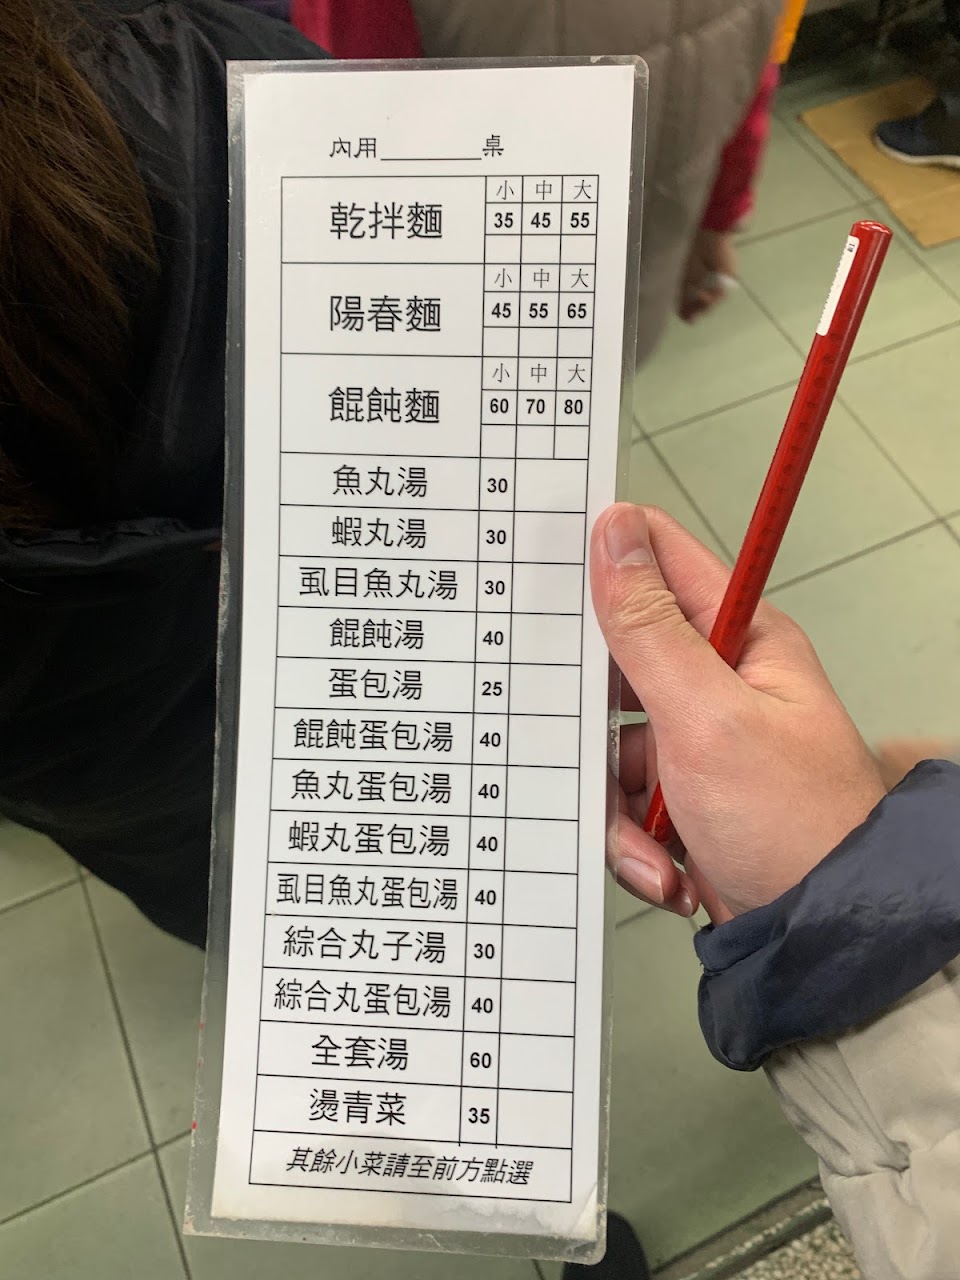 內用_______桌
乾拌麵
小 中 大
35 45 55
陽春麵
小 中 大
45 55 65
餛飩麵
小 中 大
60 70 80
魚丸湯 30
蝦丸湯 30
虱目魚丸湯 30
餛飩湯 40
蛋包湯 25
餛飩蛋包湯 40
魚丸蛋包湯 40
蝦丸蛋包湯 40
虱目魚丸蛋包湯 40
綜合丸子湯 30
綜合丸蛋包湯 40
全套湯 60
燙青菜 35
其餘小菜請至前方點選